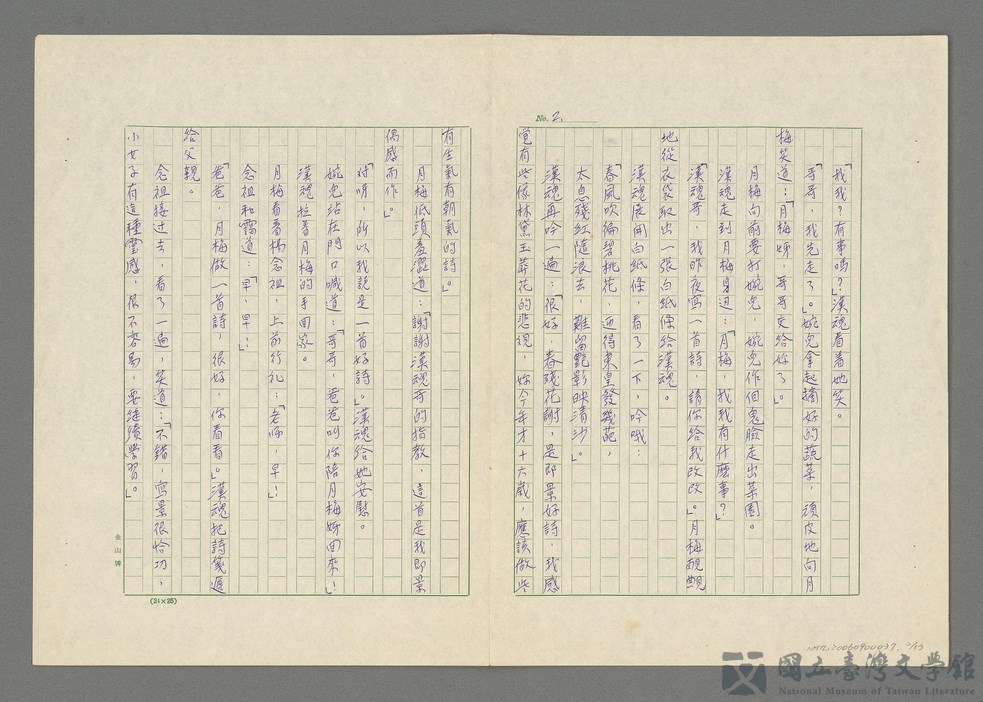 No. 2.
「我我？有事嗎？」漢魂看着她笑。
「哥哥，我先走了。」婉兒拿起摘好的蔬菜，頑皮地向月
梅笑道：「月梅姊，哥哥交給妳了。」
月梅向前要打婉兒，婉兒作個鬼臉走出菜園。
漢魂走到月梅身边：「月梅，找我有什麽事？」
「漢魂哥，我昨夜寫一首詩，請你給我改改。」月梅靦覥
地從衣袋取出一張白紙條給漢魂。
漢魂展開白紙條，看了一下，吟哦：
「春風吹徧碧桃花，迎得東皇發幾葩，
太息殘紅隨浪去，難留艷影映清沙。」
漢魂再吟一遍：「很好，春殘花謝，是即景好詩，我感
覺有些像林黛玉葬花的悲觀，妳今年才十六歲，應該做些
有生氣有朝氣的詩。」
月梅低頭羞澀道：「謝謝漢魂哥的指教，這首是我即景
偶感而作。」
「对呀，所以我說是一首好詩。」漢魂給她安慰。
婉兒站在門口喊道：「哥哥，爸爸叫你陪月梅姊回來！」
漢魂拉着月梅的手回家。
月梅看着楊念祖，上前行礼：「老师，早！」
念祖和靄道：「早，早！」
「爸爸，月梅做一首詩，很好，你看看。」漢魂把詩箋遞
給父親。
念祖接过去，看了一遍，笑道：「不錯，寫景很恰功，
小女子有這種靈感，很不容易，要继續學習。」
金山牌
(24×25)
NMTL20060900037, 2/43
國立臺灣文學館
National Museum of Taiwan Literature